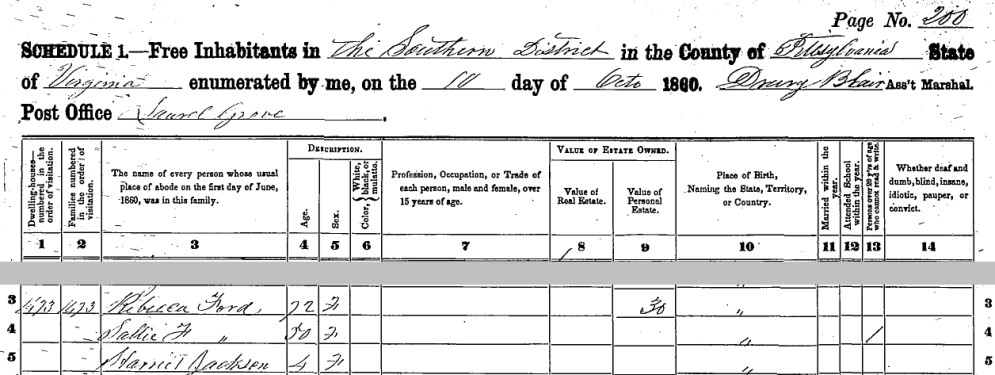 Page No. 200
SCHEDULE 1.—Free Inhabitants in The Southern District in the County of Pittsylvania State
of Virginia enumerated by me, on the 10 day of Octo 1860. Drury Blair Ass't Marshal.
Post Office Laurel Grove.
Dwelling-houses—numbered in the order of visitation.
Families numbered in the order of visitation.
The name of every person whose usual
place of abode on the first day of June,
1860, was in this family.
DESCRIPTION.
Age.
Sex.
Color, {White, black, or mulatto.
Profession, Occupation, or Trade of
each person, male and female, over
15 years of age.
VALUE OF ESTATE OWNED.
Value of
Real Estate.
Value of
Personal
Estate.
Place of Birth,
Naming the State, Territory,
or Country.
Married within the year.
Attended School within the year.
Persons over 20 y'rs of age who cannot read & write.
Whether deaf and
dumb, blind, insane,
idiotic, pauper, or
convict.
1 2 3 4 5 6 7 8 9 10 11 12 13 14
3 Rebecca Ford, 72 F 30 " 3
4 Sallie F " 50 F " / 4
5 Harriet Jackson 4 F " 5